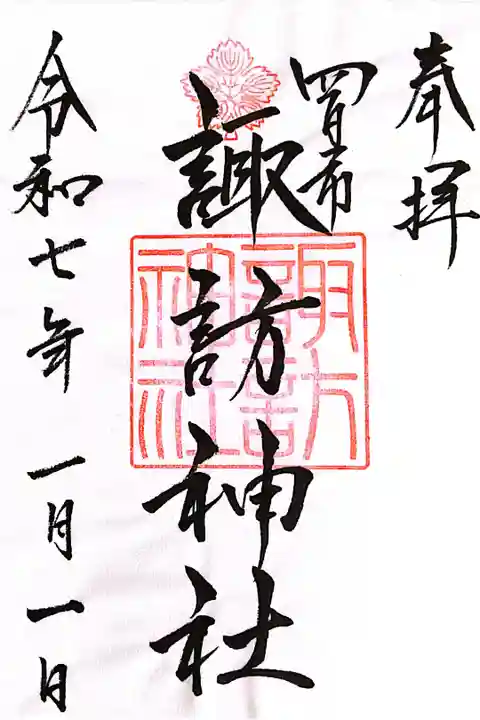 奉拝
四日市
諏訪神社
諏訪神社
令和七年一月一日